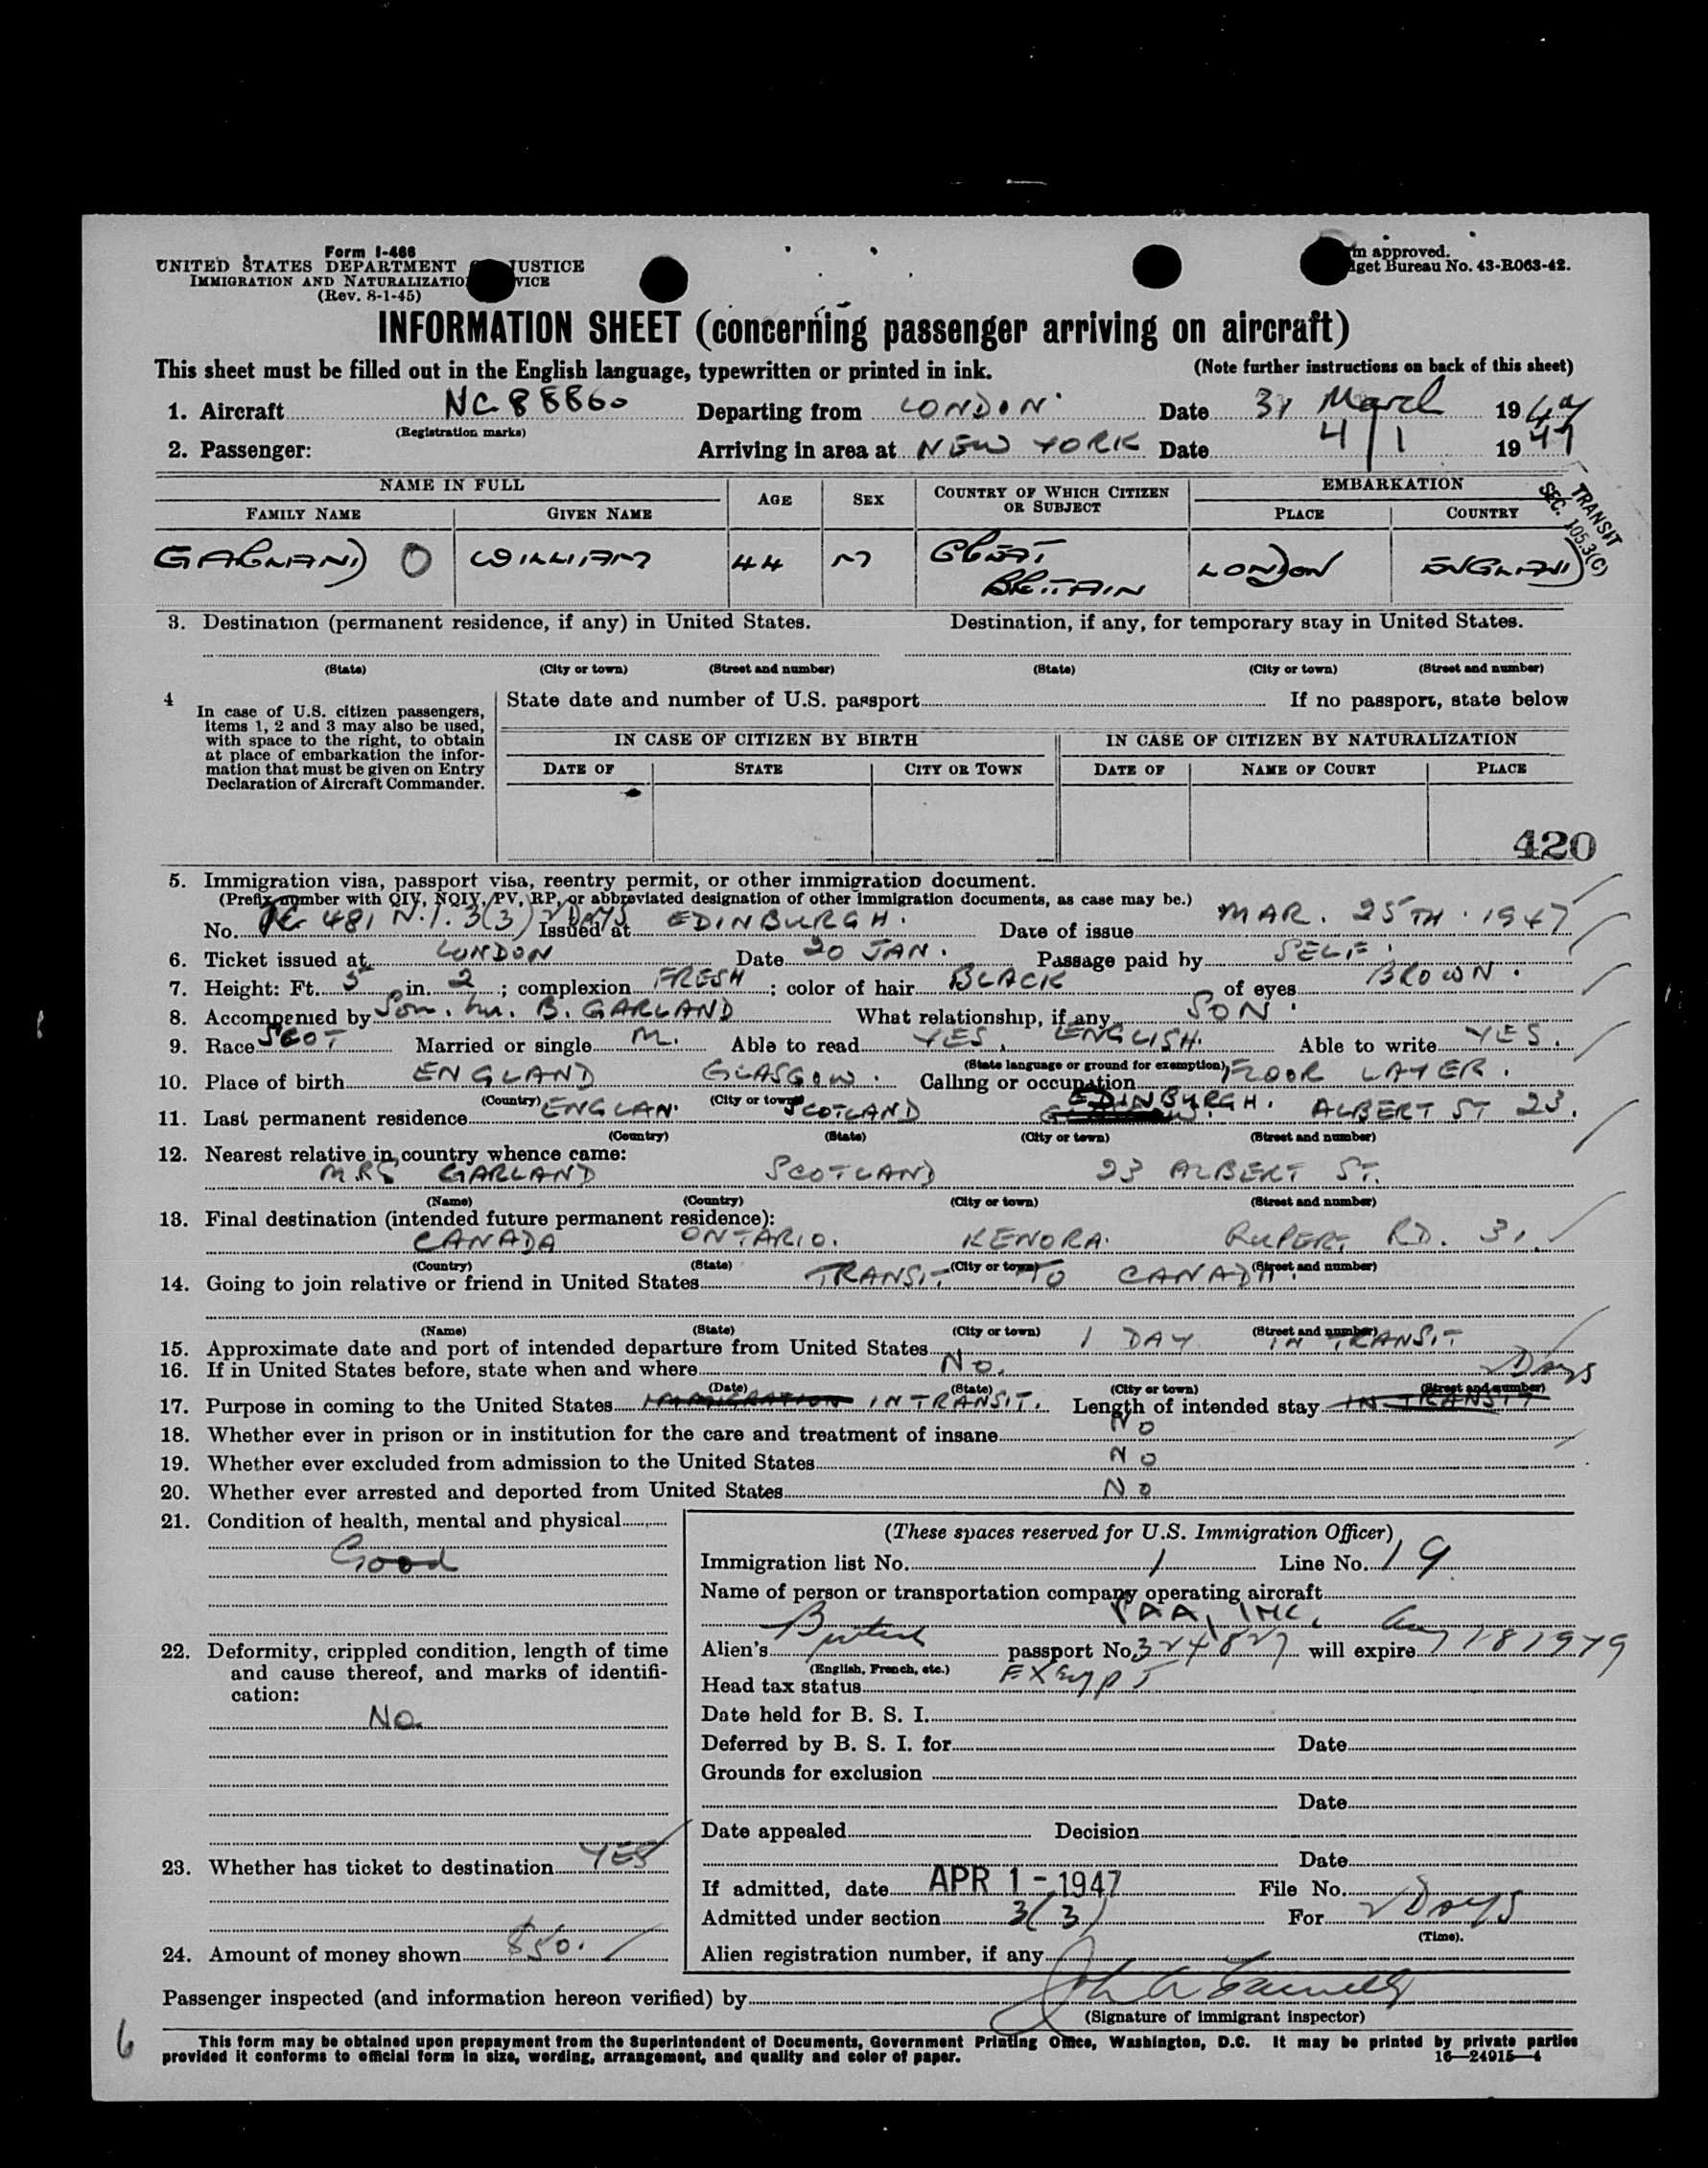 Form I-466
UNITED STATES DEPARTMENT JUSTICE
IMMIGRATION AND NATURALIZATIO VICE
(Rev. 8-1-45)
m approved.
get Bureau No. 43-R063-42.
INFORMATION SHEET (concerning passenger arriving on aircraft)
This sheet must be filled out in the English language, typewritten or printed in ink. (Note further instructions on back of this sheet)
1. Aircraft NC 88860 Departing from LONDON Date 31 March 1947
(Registration marks)
2. Passenger: Arriving in area at NEW YORK Date 4/1 1947
TRANSIT
SEC. 105.3(C)
NAME IN FULL AGE SEX COUNTRY OF WHICH CITIZEN OR SUBJECT EMBARKATION
FAMILY NAME GIVEN NAME PLACE COUNTRY
GARLAND O WILLIAM 44 M GREAT BRITAIN LONDON ENGLAND
3. Destination (permanent residence, if any) in United States. Destination, if any, for temporary stay in United States.
(State) (City or town) (Street and number) (State) (City or town) (Street and number)
4 In case of U.S. citizen passengers, items 1, 2 and 3 may also be used, with space to the right, to obtain at place of embarkation the information that must be given on Entry Declaration of Aircraft Commander.
State date and number of U.S. passport If no passport, state below
IN CASE OF CITIZEN BY BIRTH IN CASE OF CITIZEN BY NATURALIZATION
DATE OF STATE CITY OR TOWN DATE OF NAME OF COURT PLACE
420
5. Immigration visa, passport visa, reentry permit, or other immigration document.
(Prefix number with QIV, NQIV, PV, RP, or abbreviated designation of other immigration documents, as case may be.)
No. 481 N.I. 3(3) 2 DAYS Issued at EDINBURGH. Date of issue MAR. 25TH. 1947
6. Ticket issued at LONDON Date 20 JAN. Passage paid by SELF
7. Height: Ft. 5 in. 2; complexion FRESH; color of hair BLACK of eyes BROWN.
8. Accompanied by Son. Mr. B. GARLAND What relationship, if any SON
9. Race SCOT Married or single M. Able to read YES, ENGLISH. Able to write YES.
(State language or ground for exemption)
10. Place of birth ENGLAND GLASGOW. Calling or occupation FLOOR LAYER.
(Country) (City or town)
11. Last permanent residence ENGLAN. SCOTLAND EDINBURGH. ALBERT ST 23.
(Country) (State) (City or town) (Street and number)
12. Nearest relative in country whence came:
MRS GARLAND SCOTLAND 23 ALBERT ST.
(Name) (Country) (City or town) (Street and number)
13. Final destination (intended future permanent residence):
CANADA ONTARIO. KENORA. RUPERT RD. 31.
(Country) (State) (City or town) (Street and number)
14. Going to join relative or friend in United States TRANSIT TO CANADA.
(Name) (State) (City or town) (Street and number)
15. Approximate date and port of intended departure from United States 1 DAY IN TRANSIT
16. If in United States before, state when and where No.
2 Days
(Date) (State) (City or town) (Street and number)
17. Purpose in coming to the United States IMMIGRATION IN TRANSIT. Length of intended stay IN TRANSIT
18. Whether ever in prison or in institution for the care and treatment of insane NO
19. Whether ever excluded from admission to the United States NO
20. Whether ever arrested and deported from United States NO
21. Condition of health, mental and physical
Good
22. Deformity, crippled condition, length of time and cause thereof, and marks of identification:
NO.
23. Whether has ticket to destination YES
24. Amount of money shown $50.
(These spaces reserved for U.S. Immigration Officer)
Immigration list No. 1 Line No. 19
Name of person or transportation company operating aircraft
PAA, INC.
Alien's British passport No. 324827 will expire Aug 18 1949
(English, French, etc.)
Head tax status Exempt
Date held for B. S. I.
Deferred by B. S. I. for Date
Grounds for exclusion
Date
Date appealed Decision
Date
If admitted, date APR 1 - 1947 File No.
Admitted under section 3(3) For 2 Days
(Time).
Alien registration number, if any
Passenger inspected (and information hereon verified) by
(Signature of immigrant inspector)
6
This form may be obtained upon prepayment from the Superintendent of Documents, Government Printing Office, Washington, D.C. It may be printed by private parties
provided it conforms to official form in size, wording, arrangement, and quality and color of paper. 16—24915-4